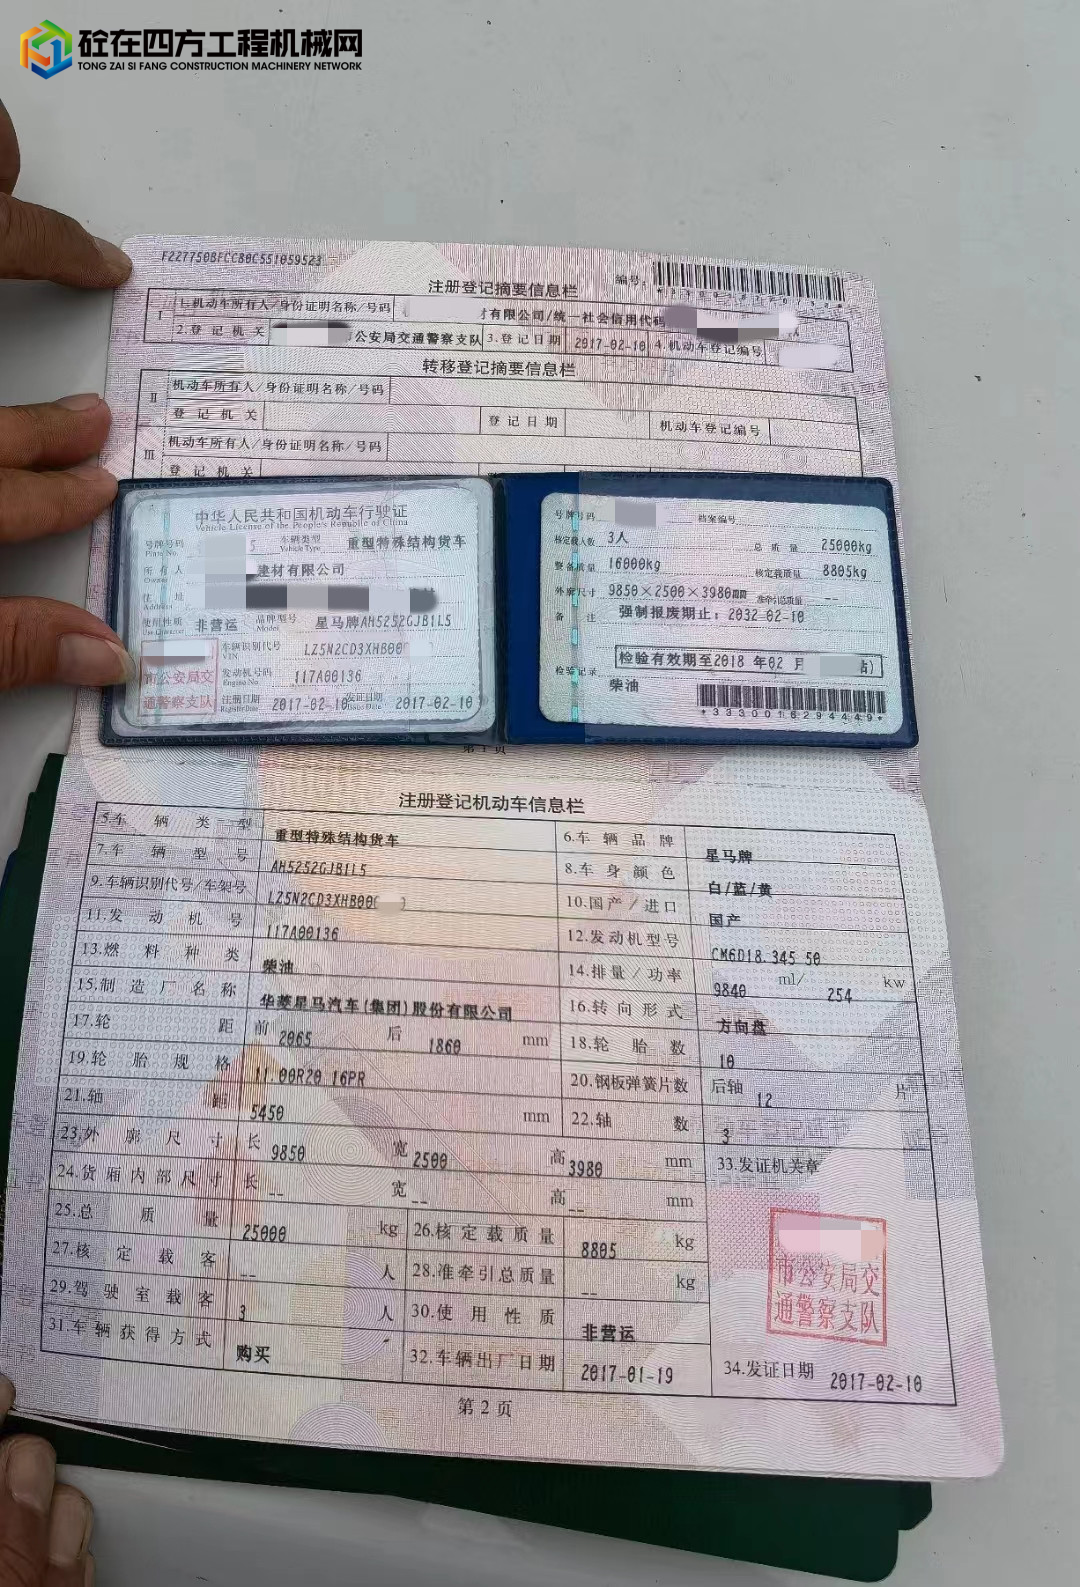 砼在四方工程机械网
TONG ZAI SI FANG CONSTRUCTION MACHINERY NETWORK
F227750BFCC80C551059523
编号:
注册登记摘要信息栏
I 1.机动车所有人/身份证明名称/号码 有限公司/统一社会信用代码
2.登记机关 公安局交通警察支队 3.登记日期 2017-02-10 4.机动车登记编号
转移登记摘要信息栏
II 机动车所有人/身份证明名称/号码
登记机关 登记日期 机动车登记编号
III 机动车所有人/身份证明名称/号码
登记机关
中华人民共和国机动车行驶证
Vehicle License of the People's Republic of China
号牌号码 Plate No. 5 车辆类型 Vehicle Type 重型特殊结构货车
所有人 Owner 建材有限公司
住址 Address
使用性质 Use Character 非营运 品牌型号 Model 星马牌AH5252GJB1L5
市公安局交通警察支队
车辆识别代号 VIN LZ5N2CD3XHB00
发动机号码 Engine No. 117A00136
注册日期 Register Date 2017-02-10 发证日期 Issue Date 2017-02-10
号牌号码 档案编号
核定载人数 3人 总质量 25000kg
整备质量 16000kg 核定载质量 8805kg
外廓尺寸 9850×2500×3980mm 准牵引总质量 --
备注 强制报废期止：2032-02-10
检验记录 检验有效期至2018 年02 月
柴油
*3330016294449*
第1页
注册登记机动车信息栏
5.车辆类型 重型特殊结构货车 6.车辆品牌 星马牌
7.车辆型号 AH5252GJB1L5 8.车身颜色 白/蓝/黄
9.车辆识别代号/车架号 LZ5N2CD3XHB00 10.国产/进口 国产
11.发动机号 117A00136 12.发动机型号 CM6D18.345 50
13.燃料种类 柴油 14.排量/功率 9840 ml/ 254 kw
15.制造厂名称 华菱星马汽车(集团)股份有限公司 16.转向形式 方向盘
17.轮距 前 2065 后 1860 mm 18.轮胎数 10
19.轮胎规格 11.00R20 16PR 20.钢板弹簧片数 后轴 12 片
21.轴距 5450 mm 22.轴数 3
23.外廓尺寸 长 9850 宽 2500 高 3980 mm 33.发证机关章
24.货厢内部尺寸 长 -- 宽 -- 高 -- mm
25.总质量 25000 kg 26.核定载质量 8805 kg
27.核定载客 -- 人 28.准牵引总质量 -- kg
市公安局交通警察支队
29.驾驶室载客 3 人 30.使用性质 非营运
31.车辆获得方式 购买 32.车辆出厂日期 2017-01-19 34.发证日期 2017-02-10
第2页